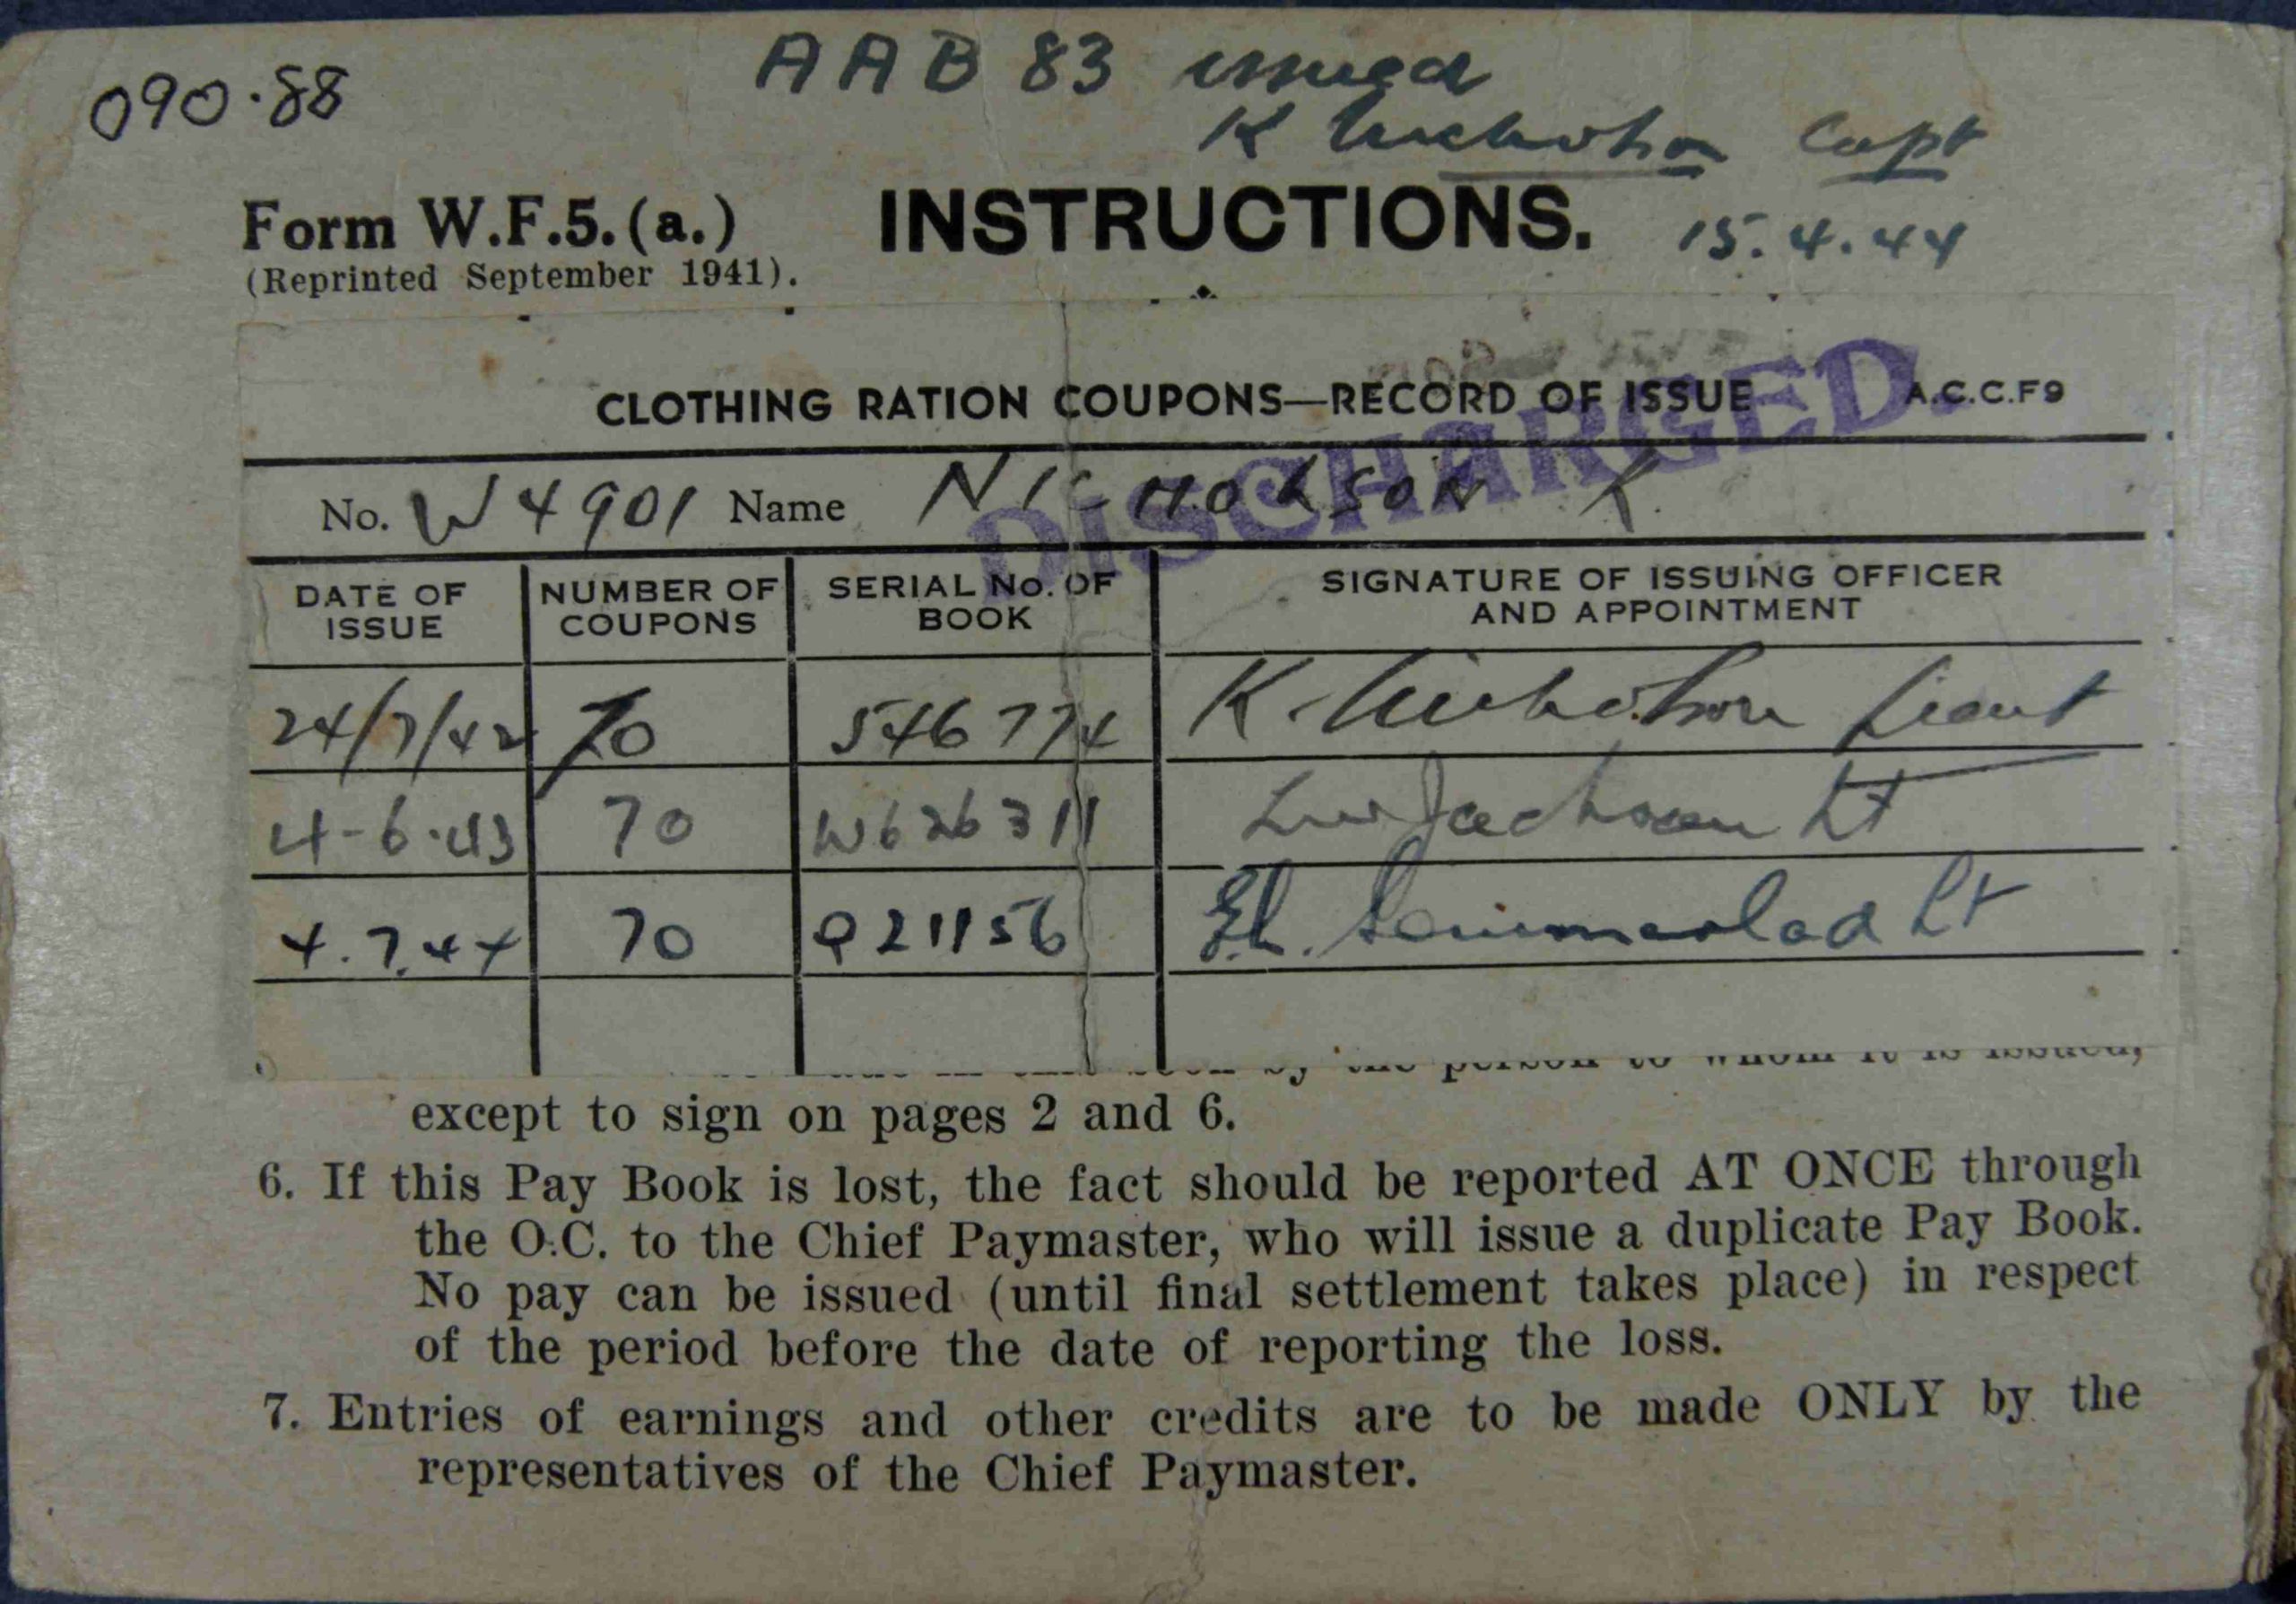 090.88
AAB 83 issued
K Nicholson Capt
Form W.F.5.(a.)
INSTRUCTIONS.
15.4.44
(Reprinted September 1941).
CLOTHING RATION COUPONS—RECORD OF ISSUE
A.C.C.F9
DISCHARGED.
No. W4901 Name NICHOLSON K.
DATE OF ISSUE
NUMBER OF COUPONS
SERIAL No. OF BOOK
SIGNATURE OF ISSUING OFFICER AND APPOINTMENT
24/7/42 70 546774 K. Nicholson Lieut
4-6-43 70 W626311 Jackson Lt
4.7.44 70 Q21156 Summerlad Lt
by the person to whom it is issued,
except to sign on pages 2 and 6.
6. If this Pay Book is lost, the fact should be reported AT ONCE through
the O.C. to the Chief Paymaster, who will issue a duplicate Pay Book.
No pay can be issued (until final settlement takes place) in respect
of the period before the date of reporting the loss.
7. Entries of earnings and other credits are to be made ONLY by the
representatives of the Chief Paymaster.